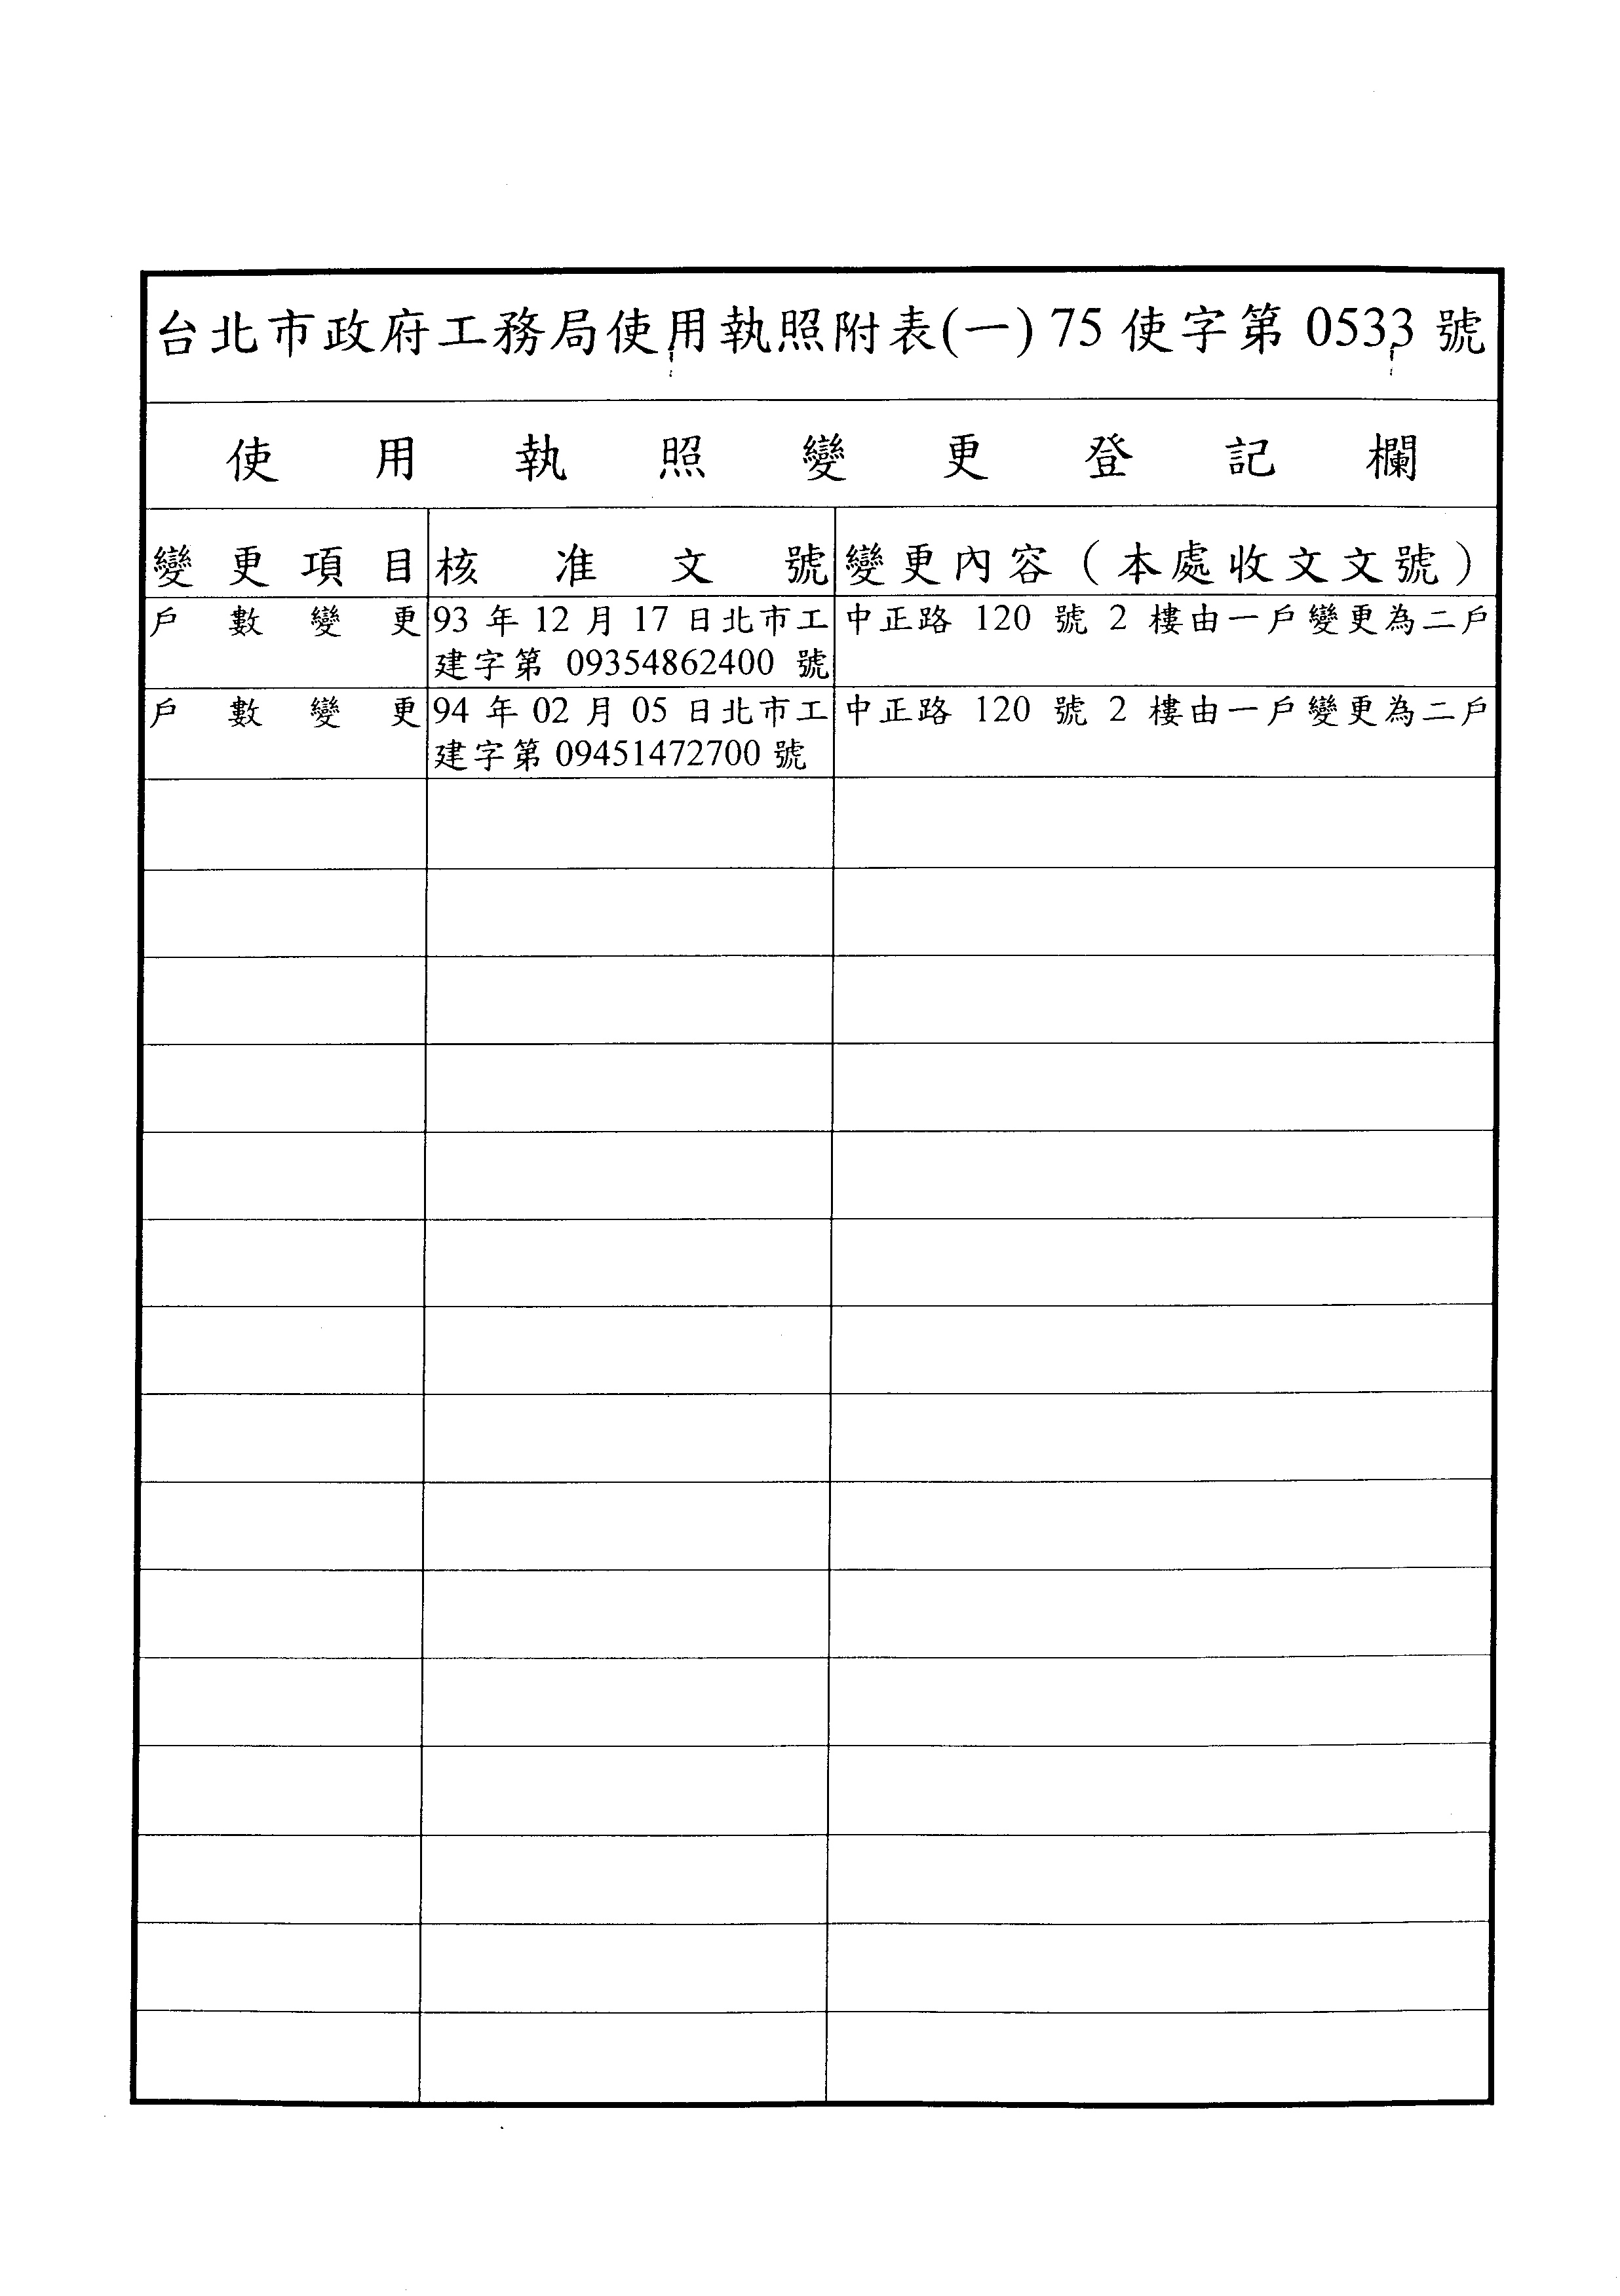 台北市政府工務局使用執照附表(一) 75 使字第 0533 號
使用執照變更登記欄
變更項目 核准文號 變更內容（本處收文文號）
戶數變更 93 年 12 月 17 日北市工 中正路 120 號 2 樓由一戶變更為二戶
建字第 09354862400 號
戶數變更 94 年 02 月 05 日北市工 中正路 120 號 2 樓由一戶變更為二戶
建字第 09451472700 號